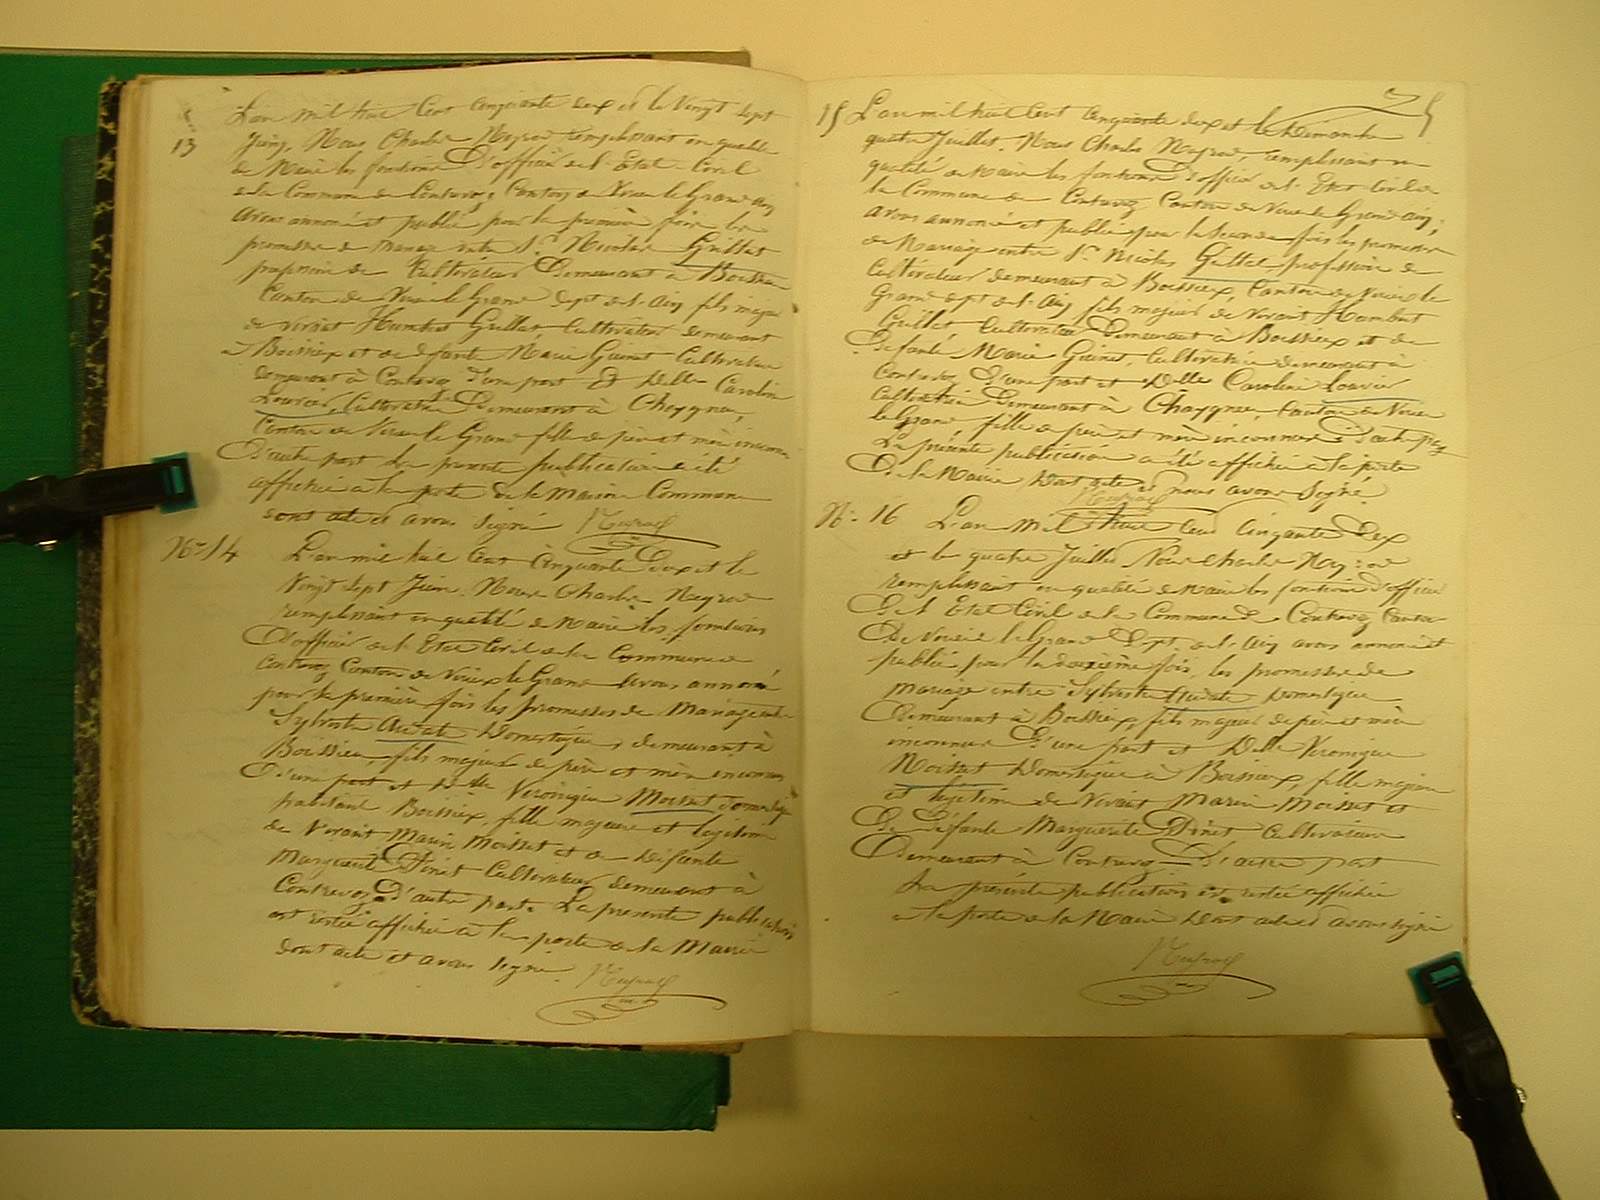 13
L'an mil huit Cent Cinquante deux et le Vingt Sept
Juin, Nous Charles Neyrod remplissant en qualité
de Maire les fonctions d'officier de l'Etat Civil
de la Commune de Contrevoz, Canton de Virieu le Grand Ain
avons annoncé et publié pour la première fois les
promesses de mariage entre Sr. Nicolas Guillet
profession de Cultivateur Demeurant à Boissieu
Canton de Virieu le Grand dept de l'Ain fils majeur
de vivant Humbert Guillet Cultivateur demeurant
à Boissieux et de défunte Marie Guinet Cultivatrice
demeurant à Contrevoz d'une part Et Delle Caroline
Louvier, Cultivatrice Demeurant à Cheygneu,
Canton de Virieu le Grand fille de père et mère inconnus
D'autre part la présente publication a été
affichée à la porte de la Maison Commune
dont acte et avons Signé Neyrod
No. 14 L'an mil huit Cent Cinquante Deux et le
Vingt Sept Juin. Nous Charles Neyrod
remplissant en qualité de Maire les fonctions
D'officier de l'Etat Civil de la Commune de
Contrevoz Canton de Virieux le Grand Avons annoncé
pour la première fois les promesses de Mariage entre
Sylvestre Domestique, demeurant à
Boissieu, fils majeur de père et mère inconnus
D'une part et Delle Véronique Moisset Domestique
habitant Boissieux, fille majeure et légitime
de Vivant Marin Moisset et de Défunte
Marguerite Dinet Cultivateur demeurant à
Contrevoz D'autre part. La présente publication
est restée affichée à la porte de la Mairie
dont acte et avons signé Neyrod
15 L'an mil huit Cent Cinquante deux et le Dimanche
quatre Juillet. Nous Charles Neyrod, remplissant en
qualité de Maire les fonctions d'officier de l'Etat Civil de
la Commune de Contrevoz Canton de Virieu le Grand Ain,
avons annoncé et publié pour la Seconde fois les promesses
de Mariage entre Sr. Nicolas Guillet profession de
Cultivateur demeurant à Boissieux, Canton de Virieux le
Grand dept de l'Ain fils majeur de Vivant Humbert
Guillet Cultivateur Demeurant à Boissieux et de
Défunte Marie Guinet, Cultivatrice demeurant à
Contrevoz D'une part et Delle Caroline Louvier
Cultivatrice Demeurant à Cheygneu, Canton de Virieu
le Grand, fille de père et mère inconnus D'autre part
La présente publication a été affichée à la porte
De la Mairie Dont acte et nous avons Signé
Neyrod
No. 16 L'an mil huit Cent Cinquante Deux
et le quatre Juillet Nous Charles Neyrod
remplissant en qualité de Maire les fonctions d'officier
De l'Etat Civil de la Commune de Contrevoz Canton
De Virieu le Grand Dept. de l'Ain avons annoncé et
publié pour la deuxième fois, les promesses de
Mariage entre Sylvestre Domestique
Demeurant à Boissieux, fils majeur de père et mère
inconnus D'une part et Delle Véronique
Moisset Domestique à Boissieux, fille majeure
et légitime de Vivant Marin Moisset et
De Défunte Marguerite Dinet Cultivateur
Demeurant à Contrevoz D'autre part
La présente publication est restée affichée
à la porte de la Mairie Dont acte et avons signé
Neyrod